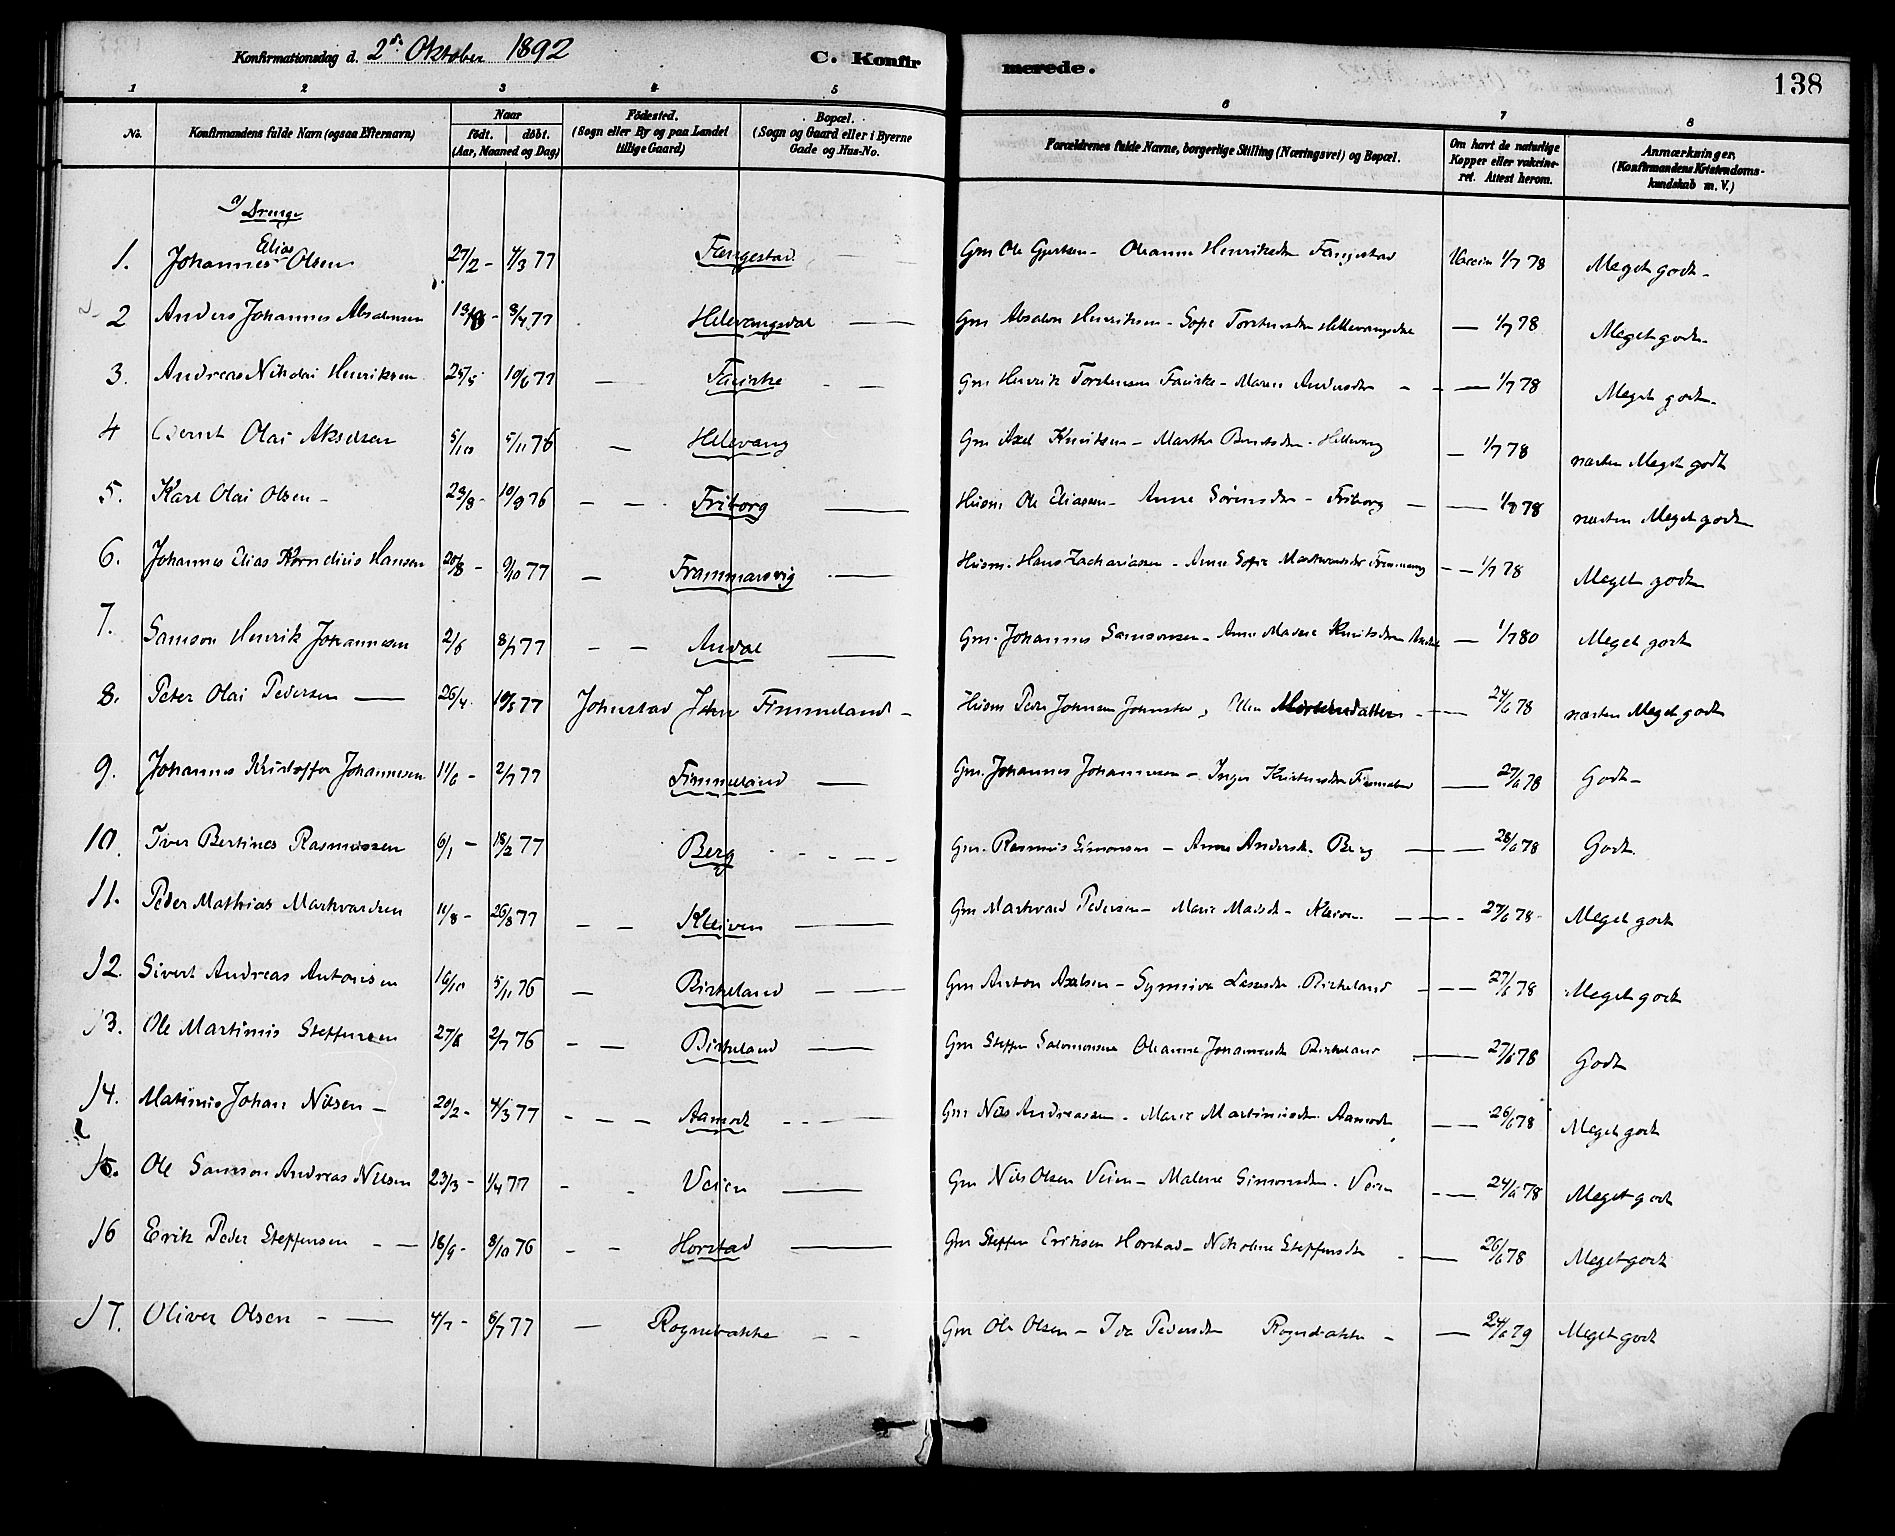 Konfirmationsdag d. 2den Oktober 1892 C. Konfirmerede. 138
1 2 3 4 5 6 7 8
No. Konfirmandens fulde Navn (ogsaa Efternavn) Naar født. døbt. (Aar, Maaned og Dag) Fødested. (Sogn eller By og paa Landet tillige Gaard) Bopæl. (Sogn og Gaard eller i Byerne Gade og Hus-No. Forældrenes fulde Navne, borgerlige Stilling (Næringsvei) og Bopæl. Om havt de naturlige Kopper eller vakcineret. Attest herom. Anmærkninger. (Konfirmandens Kristendomskundskab m. V.)
a) Drenge
1. Johannes Elias Olsen 27/2 - 4/3 77 Fangestad — Gm Ole Gjertsen - Oleanne Henriksdtr Fangestad Vaccin 1/7 78 Meget godt -
2 Anders Johannes Absalonsen 3/4 77 Hellevangsdal — Gm Absalon Henriksen - Sofie Torstensdtr Hellevangsdal — 1/7 78 Meget godt -
3. Andreas Nikolai Henriksen 25/5 10/6 77 — Faurske - — Gm Henrik Torstensen Faurske - Maren Andersdtr - - — 1/7 78 Meget godt -
4 Bernt Olai Akselsen 5/10 5/11 76 — Hellevang Gm Axel Knutsen - Marthe Berntsdtr - Hellevang — 1/7 78 næsten Meget godt
5. Karl Olai Olsen - 23/8 - 10/9 76 - - Friborg — Husm Ole Eliassen - Anne Sørensdtr - Friborg - — 1/7 78 næsten Meget godt
6. Johannes Elias Kornelius Hansen 20/8 - 9/10 77 — Frammarsvig — Husm. Hans Zachariassen - Anne Sofie Markvardsdtr - - 1/7 78 Meget godt
7. Samson Henrik Johannesen 2/6 8/7 77 - - Andal — Gm. Johannes Samsonsen - Anne Malene Knutsdtr Andal — 1/7 80 Meget godt
8. Peter Olai Pedersen — 26/4 10/5 77 Johnstad Fimmeland - Husm Peder Johnsen Johnstad, Ellen Mortensdatter - — 24/6 78 næsten Meget godt
9. Johannes Kristoffer Johannesen 11/6 - 2/7 77 Fimmeland — Gm. Johannes Johannesen - Inger Kristensdtr Fimmeland — 27/6 78 Godt -
10. Iver Bertines Rasmussen 6/1 - 18/2 77 Berg - - - Gm. Rasmus Simonsen - Anne Andersdtr. Berg — — 28/6 78 Godt.
11. Peder Mathias Markvardsen 11/8 - 26/8 77 - - Kleiven — Gm Markvard Pedersen - Marie Madsdtr - Kleiven - — - 27/6 78 - Meget godt
12. Sivert Andreas Antonsen 16/10 5/11 76 — Birkeland - — Gm Anton Axelsen - Synneva Lassesdtr Birkeland - - - 27/6 78 Meget godt
13. Ole Martinus Steffensen 2/7 76 - — Birkeland — Gm Steffen Salomonsen Oleanne Johannesdtr Birkeland — 27/6 78 Godt
14. Matinus Johan Nilsen - 20/2 - 4/3 77 - - - Aamodt - - — Gm Nils Andreassen - Marie Martinusdtr. Aamodt — - 26/6 78 Meget godt
15. Ole Samson Andreas Nilsen 23/3 - 1/4 77 - - Veien — Gm Nils Olsen Veien - Malene Simonsdtr. Veien - — 24/6 78 Meget godt
16 Erik Peder Steffensen - — 18/9 - 8/10 76 - - Horstad — Gm Steffen Eriksen Horstad - Nikoline Steffensdtr - — 26/6 78 Meget godt
17. Oliver Olsen - — 4/7 - 8/7 77 — Rognebakke - - Gm Ole Olsen - Ida Pedersdtr Rognebakke - — 24/6 79 Meget godt